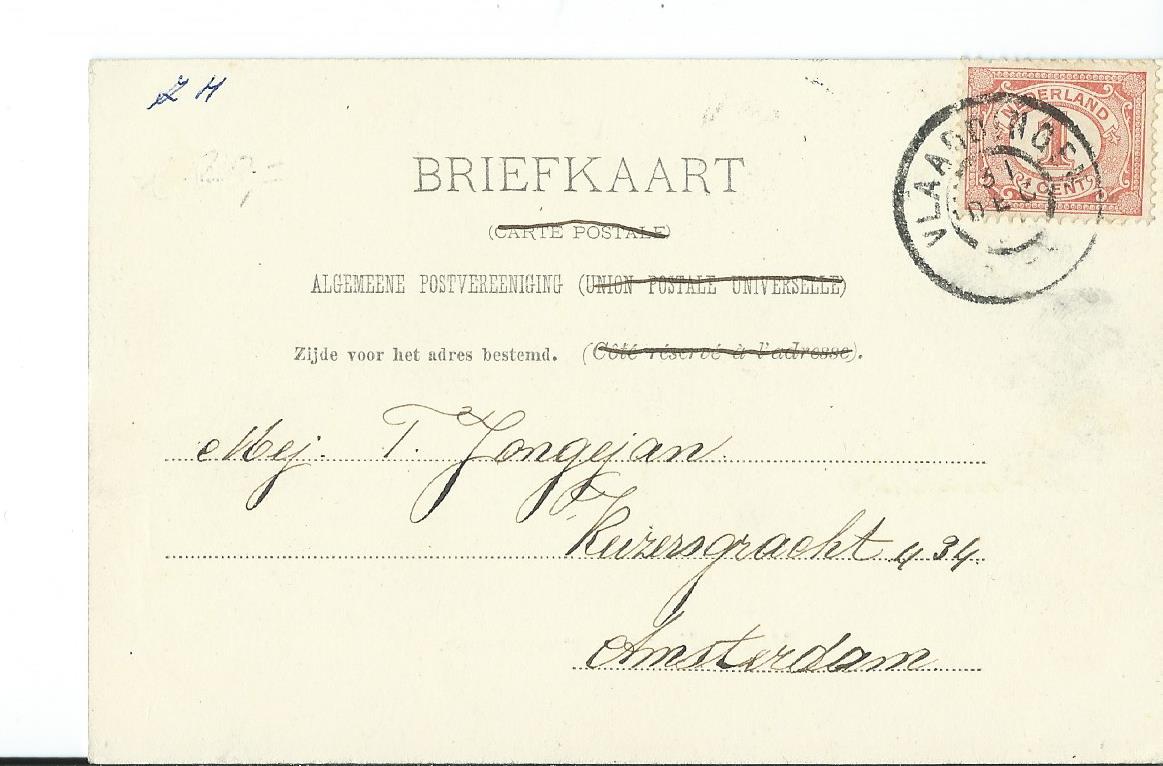 Z H
BRIEFKAART
(CARTE POSTALE)
ALGEMEENE POSTVEREENIGING (UNION POSTALE UNIVERSELLE)
Zijde voor het adres bestemd. (Côté réservé à l'adresse).
NEDERLAND
1
CENT
VLAARDINGE
31
DEC
Mej. T. Jongejan
Keizersgracht 434
Amsterdam